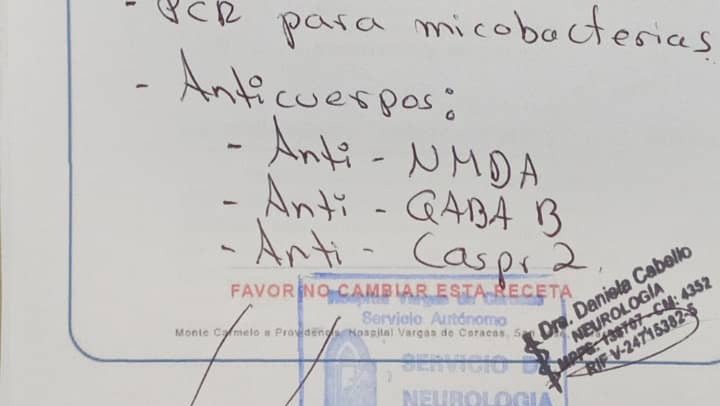 - PCR para micobacterias
- Anticuerpos:
- Anti - NMDA
- Anti - GABA B
- Anti - Caspr 2.
FAVOR NO CAMBIAR ESTA RECETA
Hospital Vargas de Caracas
Servicio Autónomo
Monte Carmelo a Providencia, Hospital Vargas de Caracas, San
SERVICIO DE
NEUROLOGIA
Dra. Daniela Caballo
NEUROLOGÍA
CM: 4352
RIF V-24715382-5